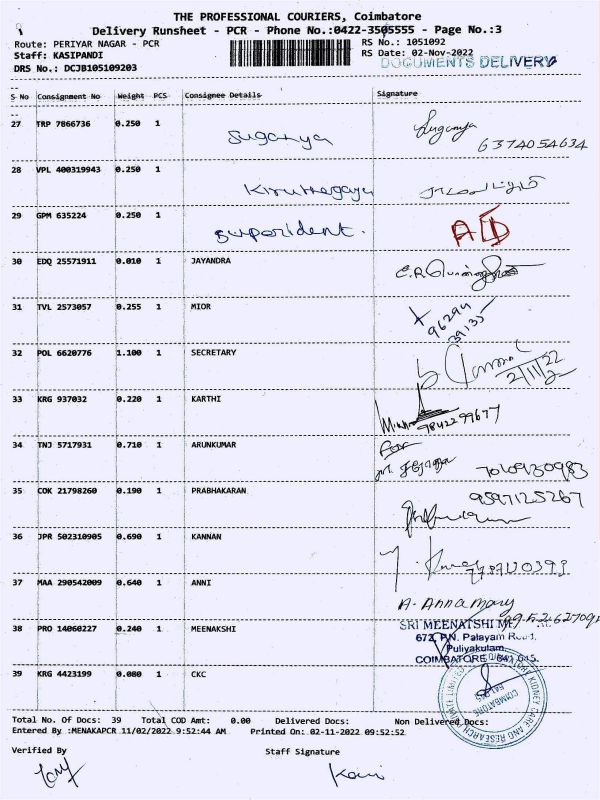 THE PROFESSIONAL COURIERS, Coimbatore
Delivery Runsheet - PCR - Phone No.:0422-3505555 - Page No.:3
Route: PERIYAR NAGAR - PCR
RS No.: 1051092
Staff: KASIPANDI
RS Date: 02-Nov-2022
DRS No.: DCJB105109203
DOCUMENTS DELIVERY
S No Consignment No Weight PCS Consignee Details Signature
27 TRP 7866736 0.250 1 Suganya Suganya
6374054634
28 VPL 400319943 0.250 1
29 GPM 635224 0.250 1 Superident.
30 EDQ 25571911 0.010 1 JAYANDRA
31 TVL 2573057 0.255 1 MIOR
96294
39135
32 POL 6620776 1.100 1 SECRETARY
2/11/22
33 KRG 937032 0.220 1 KARTHI
9842299677
34 TNJ 5717931 0.710 1 ARUNKUMAR
35 COK 21798260 0.190 1 PRABHAKARAN 9597125267
36 JPR 502310905 0.690 1 KANNAN
37 MAA 290542009 0.640 1 ANNI
A. Annamary
38 PRO 14060227 0.240 1 MEENAKSHI
SRI MEENATSHI
672, P.N. Palayam Road,
Puliyakulam
COIMBATORE - 641 045.
39 KRG 4423199 0.080 1 CKC
KIDNEY CARE AND RESEARCH
COIMBATORE
Total No. Of Docs: 39 Total COD Amt: 0.00 Delivered Docs: Non Delivered Docs:
Entered By :MENAKAPCR 11/02/2022 9:52:44 AM Printed On: 02-11-2022 09:52:52
Verified By Staff Signature